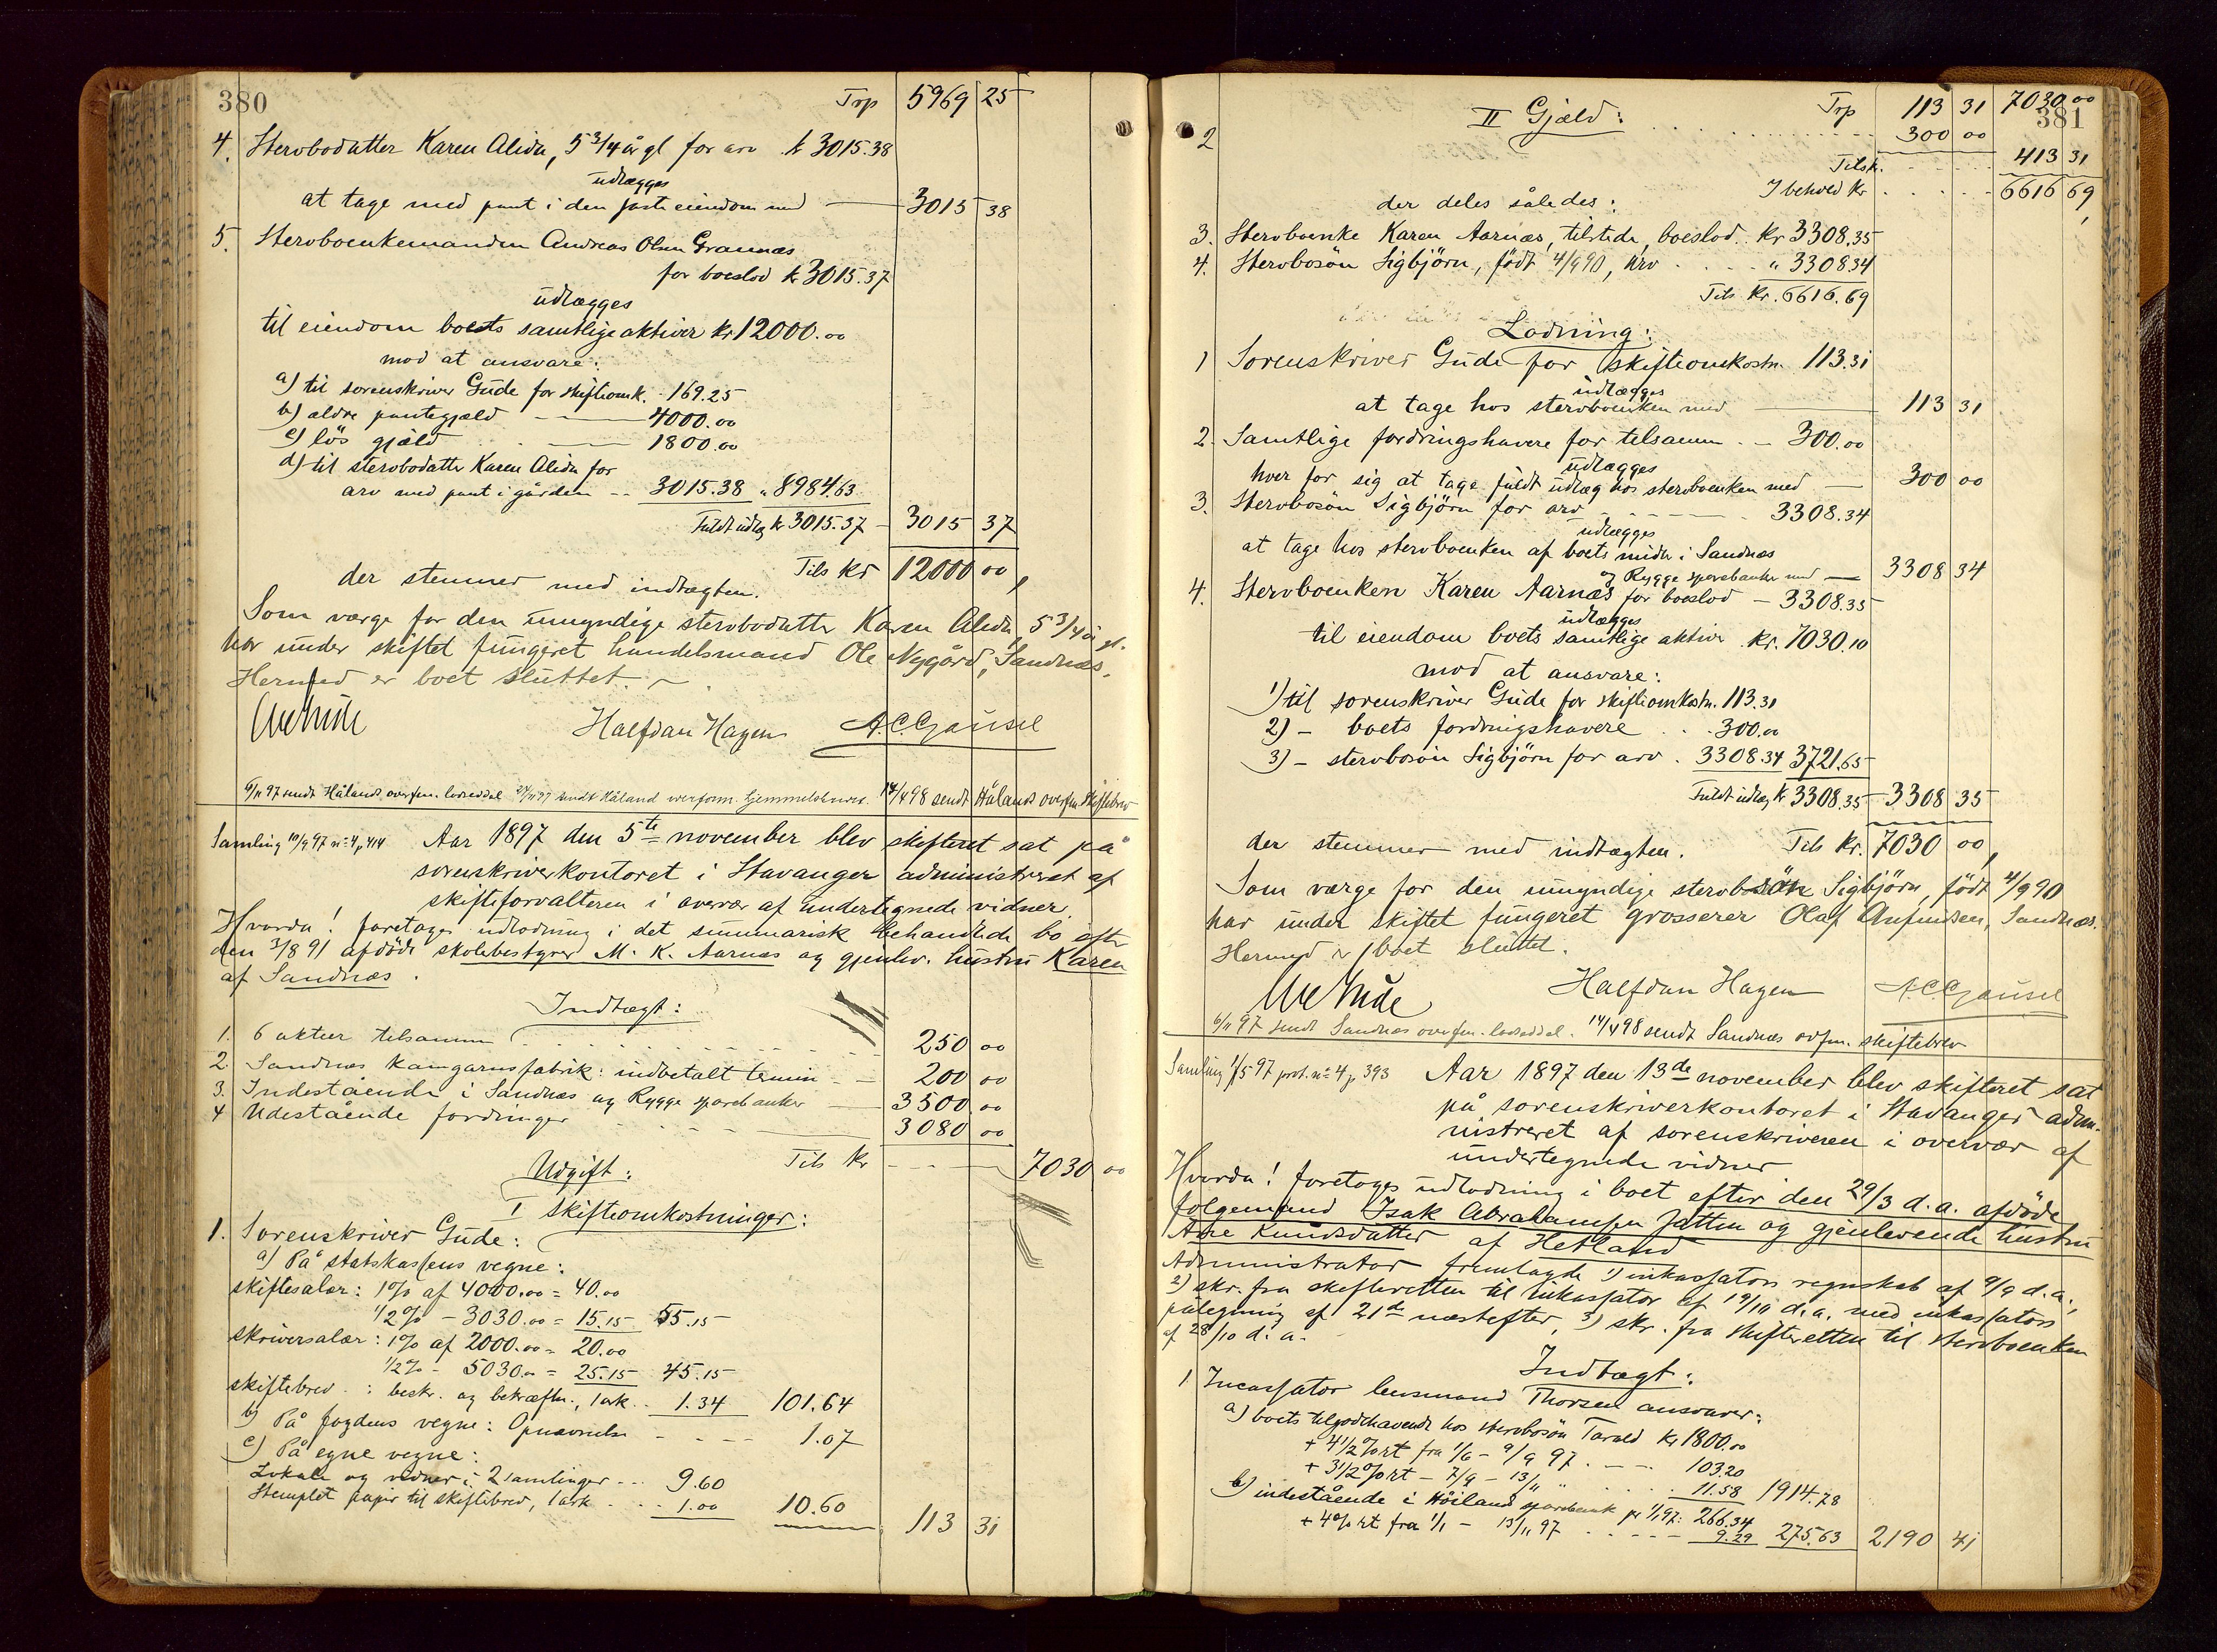 380
Trp 5969 25
4. Stervbodatter Karen Alida, 5 3/4 år gl for arv k 3015.38
udlægges
at tage med pant i den faste eiendom med — 3015 38
5. Stervboenkemanden Andreas Olsen Grannæs
for boeslod k 3015.37
udlægges
til eiendom boets samtlige aktiver kr 12000.00
mod at ansvare:
a) til sorenskriver Gude for skifteomk. 169.25
b) ældre pantegjæld — 4000.00
c) løs gjæld — 1800.00
d) til stervbodatter Karen Alida for
arv med pant i gården -- 3015.38 " 8984.63
Fuldt udlæg k 3015.37 - 3015 37
Tils kr 12000 00
der stemmer med indtægten.
Som værge for den umyndige stervbodatter Karen Alida, 5 3/4 år gl.
har under skiftet fungeret handelsmand Ole Nygård, Sandnæs.
Hermed er boet sluttet.
Halfdan Hagen A.C. Gausel
6/11 97 sendt Hålands overfm. lodseddel 14/4 98 sendt Hålands overfm. skiftebrev
Samling 10/9 97 nº 4 p 414 Aar 1897 den 5te november blev skifteret sat på
sorenskriverkontoret i Stavanger administreret af
skifteforvalteren i overvær af undertegnede vidner.
Hvorda! foretages udlodning i det summarisk behandlede bo efter
den 3/8 91 afdöde skolebestyrer M. K. Aarnæs og gjenlev. hustru Karen
af Sandnæs.
Indtægt:
1. 6 aktier tilsammen 250 00
2. Sandnæs Kamgarnsfabrik: indbetalt termin - 200 00
3. Indestående i Sandnæs og Rygge sparebanker — 3500 00
4 Udestående fordringer 3080 00
Tils kr 7030 00
Udgift:
I Skifteomkostninger:
1. Sorenskriver Gude:
a) På statskassens vegne:
skiftesalær: 1% af 4000.00 = 40.00
1/2% - 3030.00 = 15.15 55.15
skriversalær: 1% af 2000.00 = 20.00
1/2% - 5030.00 = 25.15 45.15
skiftebrev: beskr. og bekræftn., 1 ark.. 1.34 101.64
b) På fogdens vegne: Opnævnelse 1.07
c) På egne vegne:
Lokale og vidner i 2 samlinger --- 9.60
Stemplet papir til skiftebrev, 1 ark 1.00 10.60 113 31
381
II Gjæld: Trp 113 31 7030.00
2 300 00
Tilsk. 413 31
I behold kr 6616 69
der deles således:
3. Stervboenke Karen Aarnæs, tilstede, boeslod kr 3308.35
4. Stervbosön Sigbjörn, født 4/9 90, arv " 3308.34
Tils kr. 6616.69
Lodning:
1 Sorenskriver Gude for skifteomkostn. 113.31
udlægges
at tage hos stervboenken med — 113 31
2. Samtlige fordringshavere for tilsamm. - 300.00
udlægges
hver for sig at tage fuldt udlæg hos stervboenken med — 300 00
3. Stervbosön Sigbjörn for arv 3308.34
udlægges
at tage hos stervboenken af boets midler i Sandnæs
og Rygge sparebanker med — 3308 34
4. Stervboenken Karen Aarnæs for boeslod - 3308.35
udlægges
til eiendom boets samtlige aktiver kr. 7030.10
mod at ansvare:
1) til sorenskriver Gude for skifteomkostn. 113.31
2) - boets fordringshavere 300.00
3) - stervbosön Sigbjörn for arv. 3308.34 3721.65
Fuldt udlæg k 3308.35 - 3308 35
der stemmer med indtægten. Tils kr. 7030 00
Som værge for den umyndige stervbosön Sigbjörn, födt 4/9 90
har under skiftet fungeret grosserer Olaf Anfindsen, Sandnæs.
Hermed er boet sluttet.
Halfdan Hagen A.C. Gausel
6/11 97 sendt Sandnæs overfm. lodseddel. 14/4 98 sendt Sandnæs ovfm. skiftebrev
Samling 1/5 97 prot. nº 4 p 393 Aar 1897 den 13de november blev skifteret sat
på sorenskriverkontoret i Stavanger admi-
nistreret af sorenskriveren i overvær af
undertegnede vidner
Hvorda! foretages udlodning i boet efter den 29/3 d.a. afdöde
folgemand Isak Abrahamsen Jatten og gjenlevende hustru
Ane Knudsdatter af Hetland
Administrator fremlagde 1) inkassators regnskab af 9/9 d.a.,
2) skr. fra skifteretten til inkassator af 19/10 d.a. med inkassators
påtegning af 21de næstefter, 3) skr. fra skifteretten til stervboenken
af 28/10 d.a.
Indtægt:
1 Incassator lensmand Thorsen ansvarer:
a) boets tilgodehavende hos stervbosön Tarald kr 1800.00
+ 4 1/2 % rt fra 1/6 - 9/9 97 103.20
+ 3 1/2 % rt - 7/9 - 13/11 " 11.58 1914.78
b) indestående i Höilands sparebank pr 1/1 97: 266.34
+ 4% rt fra 1/1 - 13/11 97 9.29 275.63 2190 41